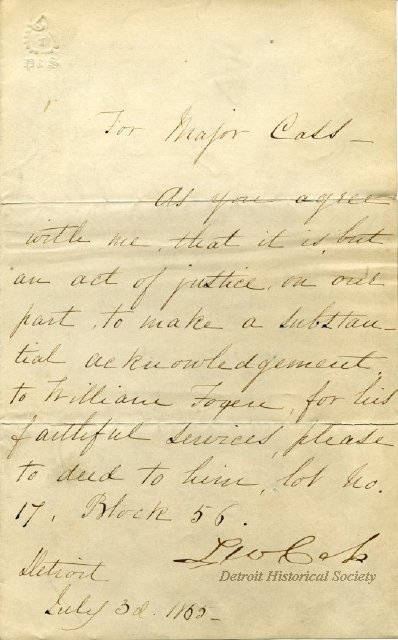 P & S
For Major Cass –
As you agree
with me, that it is but
an act of justice, on our
part, to make a substan-
tial acknowledgement,
to William for his
faithful services, please
to deed to him, lot No.
17, Block 56.
Lew Cass
Detroit Historical Society
Detroit
July 3d. 1865–